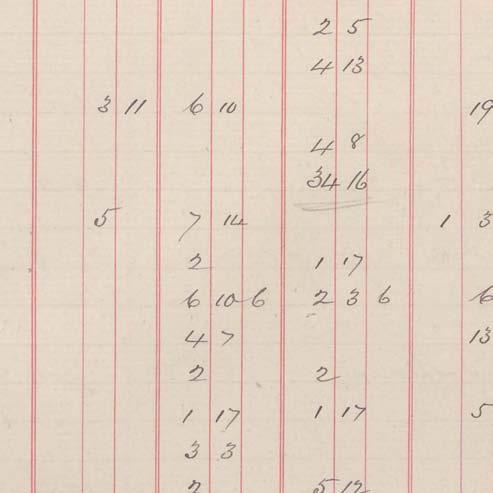 2 5
4 13
3 11 6 10 19
4 8
34 16
5 7 14 1 3
2 1 17
6 10 6 2 3 6 6
4 7 13
2 2
1 17 1 17 5
3 3
2 5 12